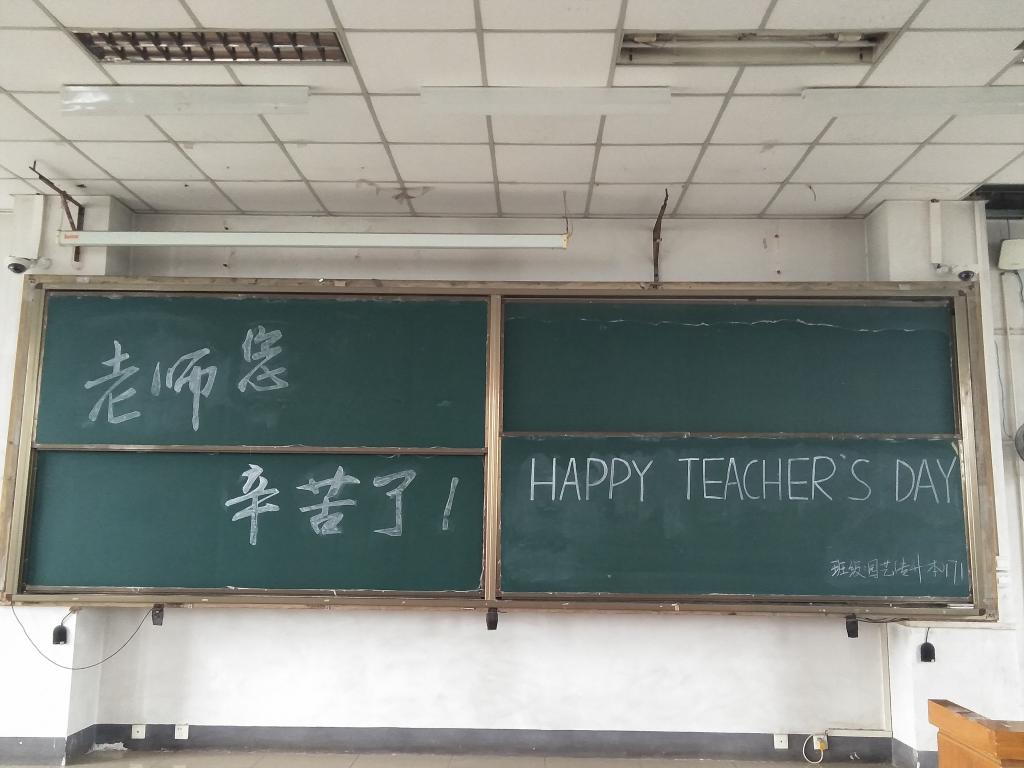 老师您
辛苦了！
HAPPY TEACHER'S DAY
班级园艺(专升本)171